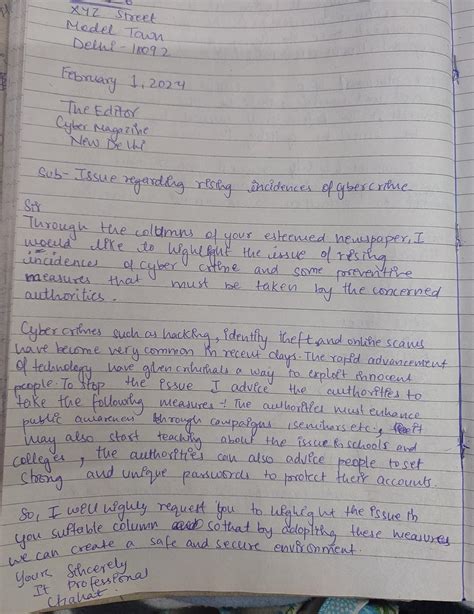 XYZ Street
Model Town
Delhi - 110092
February 1, 2024
The Editor
Cyber Magazine
New Delhi
Sub- Issue regarding rising incidences of cybercrime
Sir
Through the columns of your esteemed newspaper, I
would like to highlight the issue of rising
incidences of cyber crime and some preventive
measures that must be taken by the concerned
authorities.
Cyber crimes such as hacking, identity theft and online scams
have become very common in recent days. The rapid advancement
of technology have given criminals a way to exploit innocent
people. To stop the issue I advise the authorities to
take the following measures :- The authorities must enhance
public awareness through campaigns, seminars etc.,
may also start teaching about the issue in schools and
colleges, the authorities can also advice people to set
strong and unique passwords to protect their accounts.
So, I will highly request you to highlight the issue in
you suitable column so that by adopting these measures
we can create a safe and secure environment.
Yours Sincerely
It Professional
Chahat